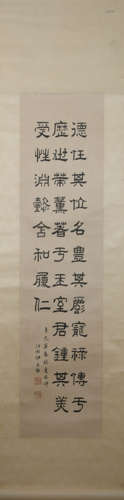 德任其位名豐其爵寵祿傳于
歷世策薰著于王室君鐘其美
受性淵懿含和履仁